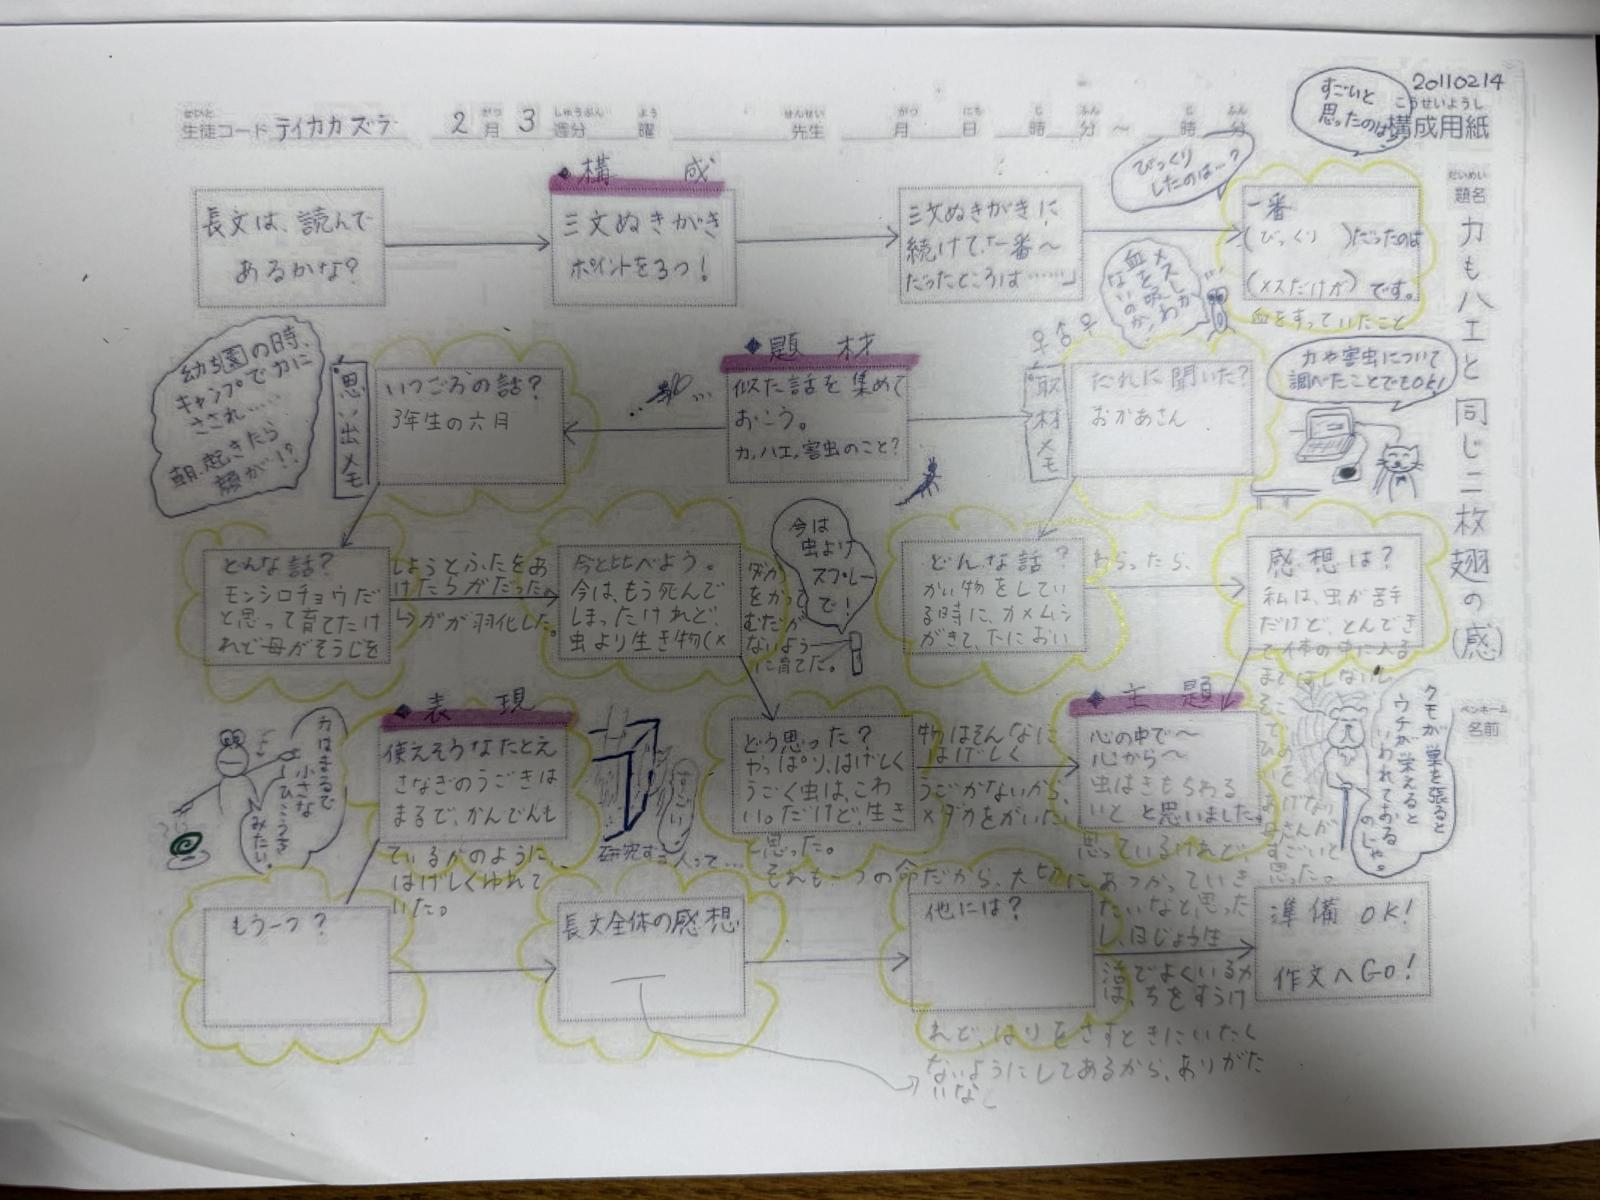 20110214
こうせいようし
構成用紙
せいと
生徒コード テイカカズラ
2 月 3 週分 曜 先生 月 日 時 分 ～ 時 分
だいめい
題名
力もハエと同じ二枚翅の(感)
ペンネーム
名前
すごいと
思ったのは
びっくり
したのは…?
◆構 成
長文は、読んで
あるかな?
三文ぬきがき
ポイントを3つ!
三文ぬきがきに
続けて「一番～
だったところは……」
一番
(びっくり )だったのは
(メスだけが) です。
血をすっていたこと
メスしか
血を吸わ
ないのか!
♀♂♀
カや害虫について
調べたことでもOK!
取材メモ
だれに聞いた?
おかあさん
◆題 材
似た話を集めて
おこう。
カ,ハエ,害虫のこと?
思い出メモ
いつごろの話?
3年生の六月
幼ち園の時、
キャンプでカに
さされ……
朝、起きたら
顔が!?
どんな話?
モンシロチョウだ
と思って育てたけ
れど母がそうじを
しようとふたをあ
けたらがだった。
↳がが羽化した。
今と比べよう。
今は、もう死んで
しまったけれど、
虫より生き物(メ
ダカ
をかって
むだが
ないよう
に育てた。
今は
虫よけ
スプレー
で!
どんな話?
かい物をしてい
る時に、カメムシ
がきて、たにおい
わらったら、
感想は?
私は、虫が苦手
だけど、とんでき
て体の中に入る
まではしないし
クモが巣を張ると
ウチが栄えると
いわれておる
のじゃ。
◆表 現
使えそうなたとえ
さなぎのうごきは
まるで、かんでんも
ているかのように、
はげしくゆれて
いた。
カはまるで
小さな
ひこうき
みたい。
すごい
研究する人って…
どう思った?
やっぱり、はげしく
うごく虫は、こわ
い。だけど、生き
物はそんなに
はげしく
うごかないから、
メダカをかいたい
と思った。
◆主 題
心の中で～
心から～
虫はきもちわる
いと と思いました。
思っているけれど、
それも一つの命だから、大切にあつかっていき
たいなと思った
し、日じょう生
活でよくいるカ
は、ちをすうけ
れど、はりをさすときにいたく
ないようにしてあるから、ありがた
いなし
もう一つ?
長文全体の感想
他には?
準備 OK!
作文へGO!